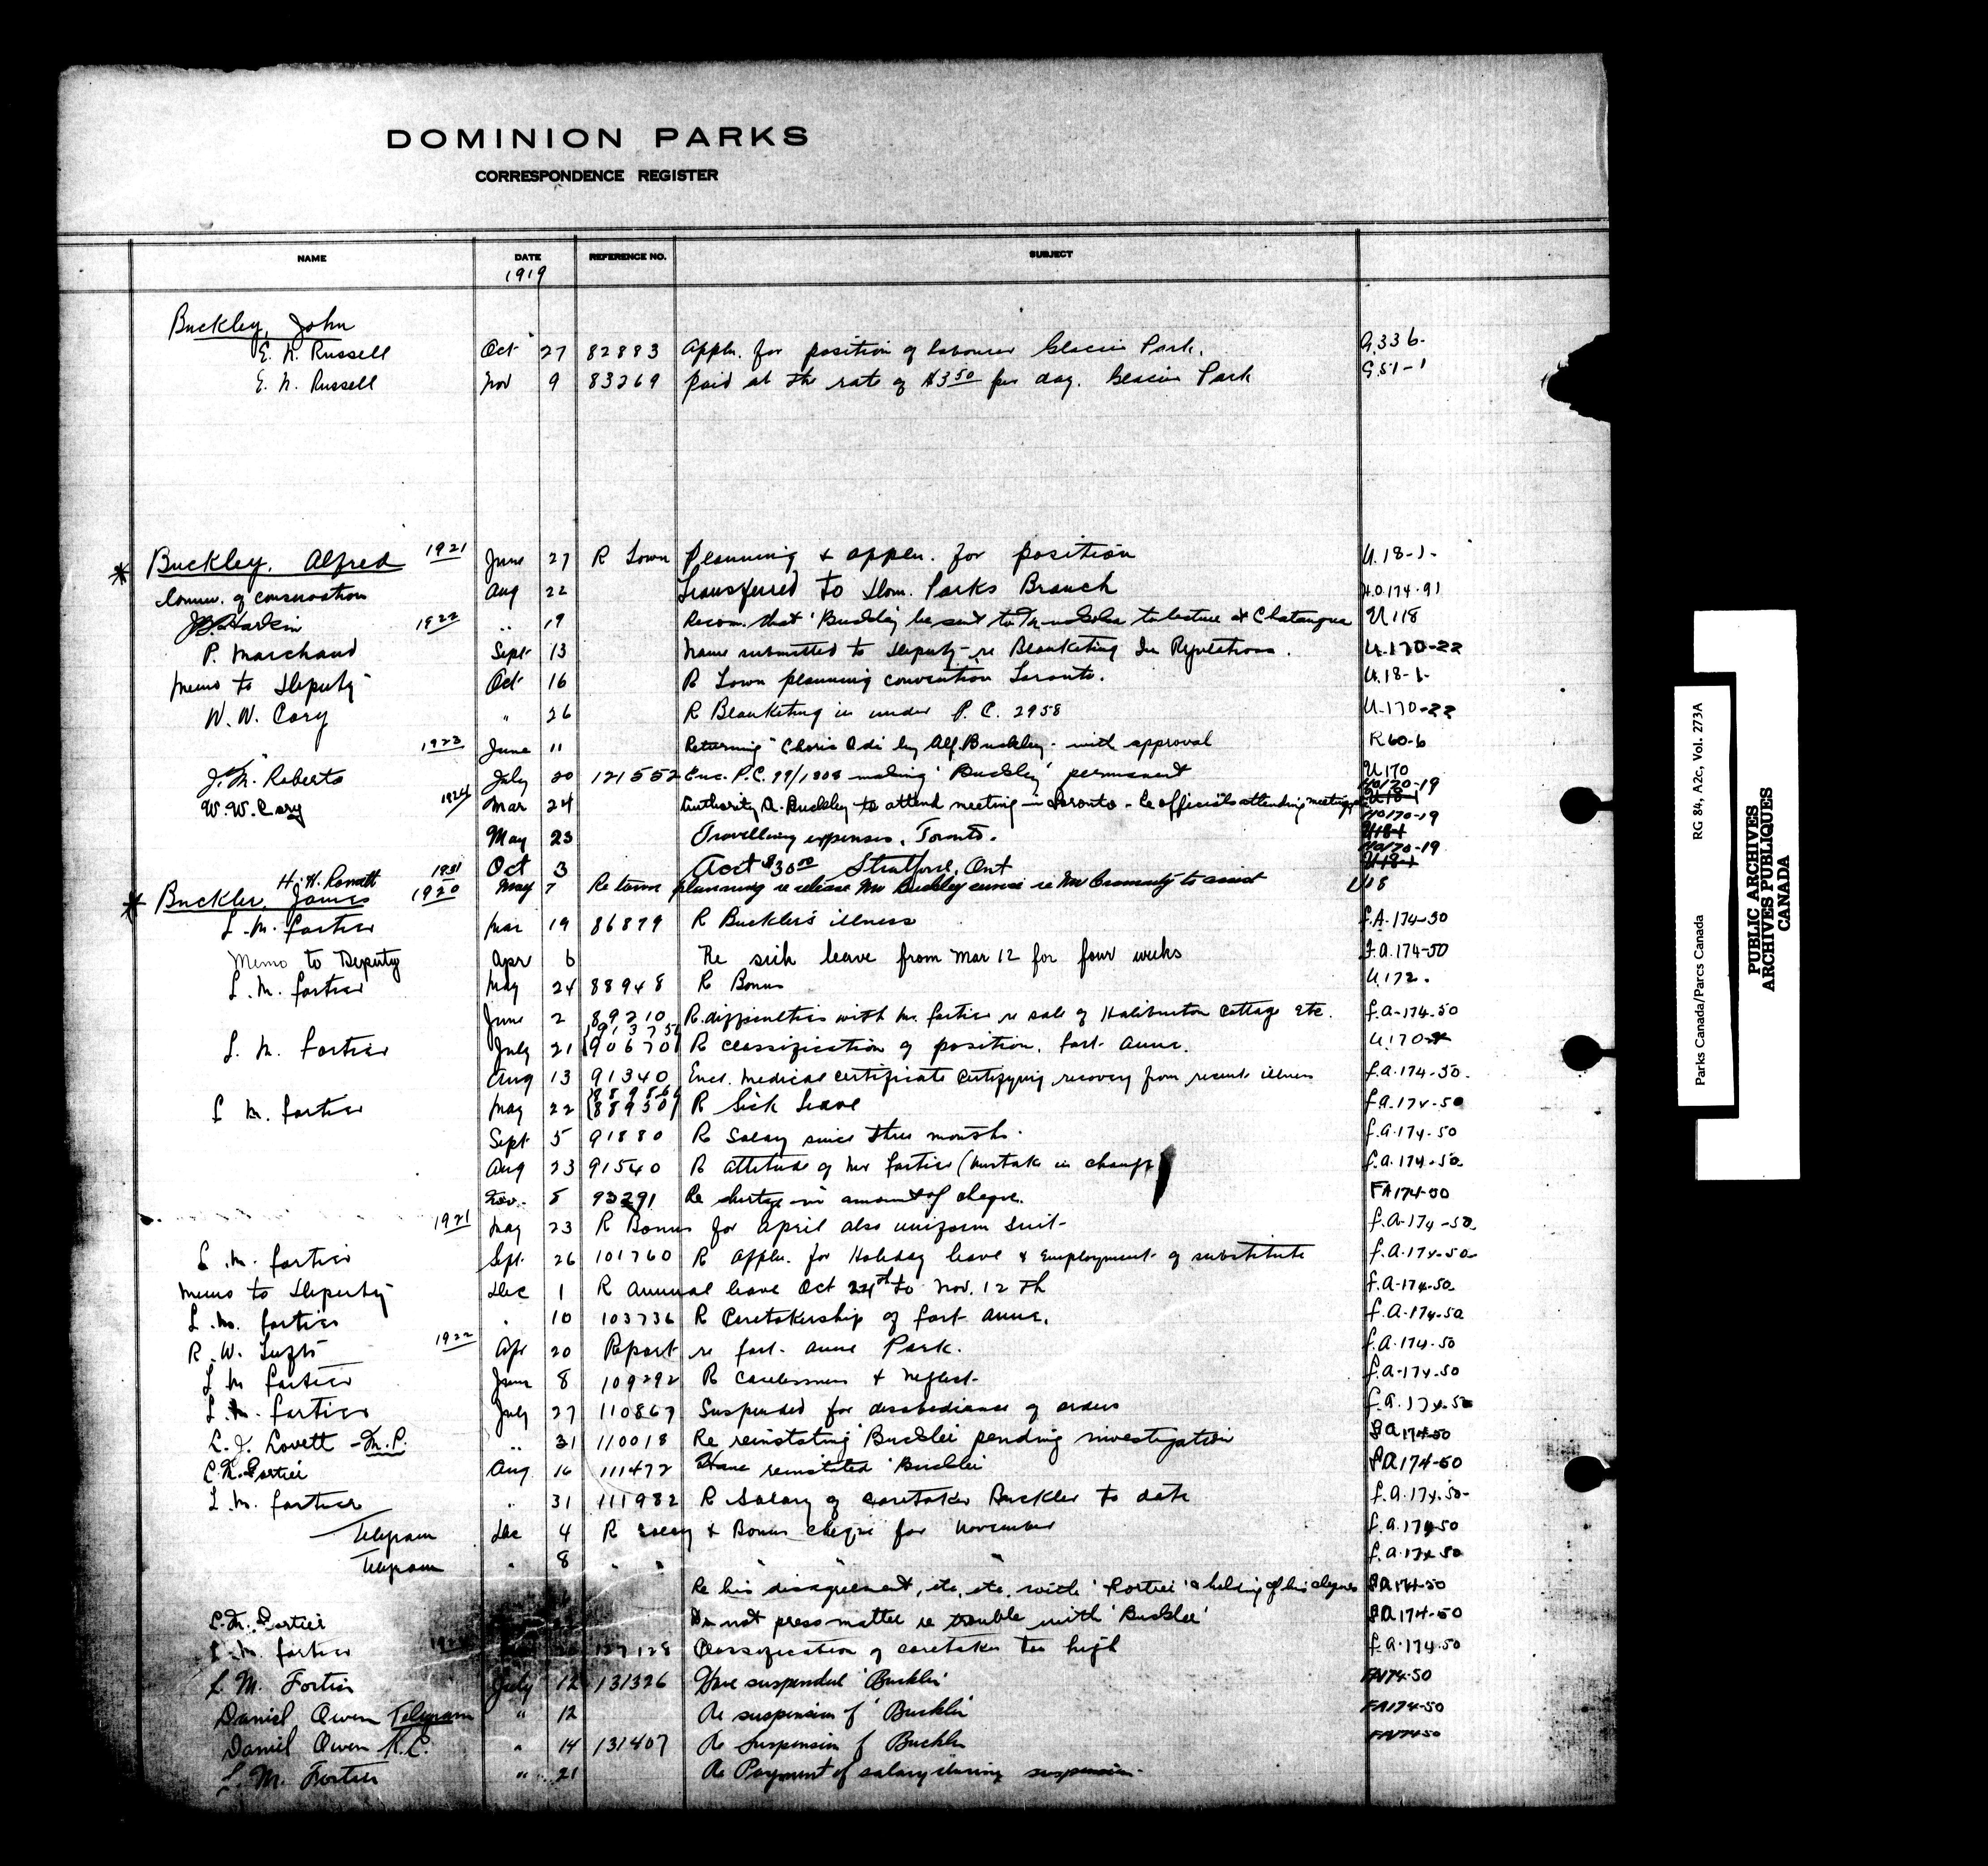 DOMINION PARKS
CORRESPONDENCE REGISTER
NAME DATE REFERENCE NO. SUBJECT
1919
Buckley, John
E. N. Russell Oct 27 82883 Appln. for position of labourer Glacier Park. G.336-
E. N. Russell Nov 9 83269 paid at the rate of $3.50 per day. Glacier Park G.51-1
* Buckley, Alfred 1921 June 27 R Town Planning & appln. for position U.18-1-
Comm. of conservation Aug 22 Transferred to Dom. Parks Branch H.O.174-91
J.B. Harkin 1922 .. 19 Recom. that 'Buckley' be sent to to lecture at Chatauqua U118
P. Marchand Sept 13 Name submitted to Deputy re Blanketing In Regulations. U.170-22
Memo to Deputy Oct 16 R Town planning convention Toronto. U.18-1-
W. W. Cory " 26 R Blanketing in under P.C. 2958 U.170-22
" 1923 June 11 Returning by Alf. Buckley - with approval R60-6
J. M. Roberts July 20 121552 Enc. P.C. 99/1308 making 'Buckley' permanent U170
W. W. Cory 1924 Mar 24 Authority A. Buckley to attend meeting in Toronto - Re officials attending meetings HO170-19 U18-1
May 23 Travelling expenses, Toronto. HO170-19 U18-1
Oct 3 Acct $30.00 Stratford, Ont HO170-19 U18-1
H. W. 1931 May 7 Re town planning re release Mr Buckley service re Mr to assist U18
* Buckler, James 1920
L. M. Fortier Mar 19 86879 R Buckler's illness F.A.174-50
Memo to Deputy Apr 6 Re sick leave from Mar 12 for four weeks F.A.174-50
L. M. Fortier May 24 88948 R Bonus U.172.
June 2 89210 R. difficulties with Mr. Fortier re sale of Haliburton Cottage etc. F.A-174-50
L. M. Fortier July 21 {91375 90670} R classification of position. Fort Anne. U.170-
Aug 13 91340 Encl. Medical certificate certifying recovery from recent illness F.A.174-50.
L. M. Fortier May 22 {88986 88950} R Sick Leave F.A.174-50
Sept 5 91880 R Salary since three months. F.A.174-50
Aug 23 91540 R attitude of Mr Fortier (mistake in change) F.A.174-50
Nov. 5 93291 Re shortage in amount of cheque. FA174-50
1921 May 23 R Bonus for April also uniform suit F.A-174-50
L. M. Fortier Sept. 26 101760 R Appln. for Holiday leave & Employment of substitute F.A.174-50
Memo to Deputy Dec 1 R annual leave Oct 24th to Nov. 12th F.A-174-50
L. M. Fortier " 10 103736 R Caretakership of Fort Anne. F.A-174-50
R. W. Tufts 1922 Apr 20 Report re Fort Anne Park. F.A.174-50
L M Fortier June 8 109292 R Carelessness & neglect F.A-174-50
L. M. Fortier July 27 110867 Suspended for disobedience of orders F.A.174-50
L. J. Lovett - M.P. .. 31 110018 Re reinstating Buckler pending investigation FA174-50
L. M. Fortier Aug 16 111472 Have reinstated 'Buckler' FA174-50
L. M. Fortier " 31 111982 R Salary of caretaker Buckler to date F.A.174-50-
Telegram Dec 4 R salary & Bonus cheque for November F.A.174-50
Telegram " 8 " " " " F.A.174-50
Re his disagreement, etc, etc, with 'Fortier' & holding of his cheques FA174-50
L. M. Fortier Do not press matter re trouble with 'Buckler' FA174-50
L. M. Fortier 127128 Classification of caretaker too high F.A.174-50
L. M. Fortier July 12 131326 Have suspended 'Buckler' FA174-50
Daniel Owen Telegram " 12 Re suspension of 'Buckler' FA174-50
Daniel Owen K.C. " 14 131407 Re Suspension of Buckler FA174-50
L. M. Fortier " 21 Re Payment of salary during suspension.
Parks Canada/Parcs Canada RG 84, A2c, Vol. 273A
PUBLIC ARCHIVES
ARCHIVES PUBLIQUES
CANADA